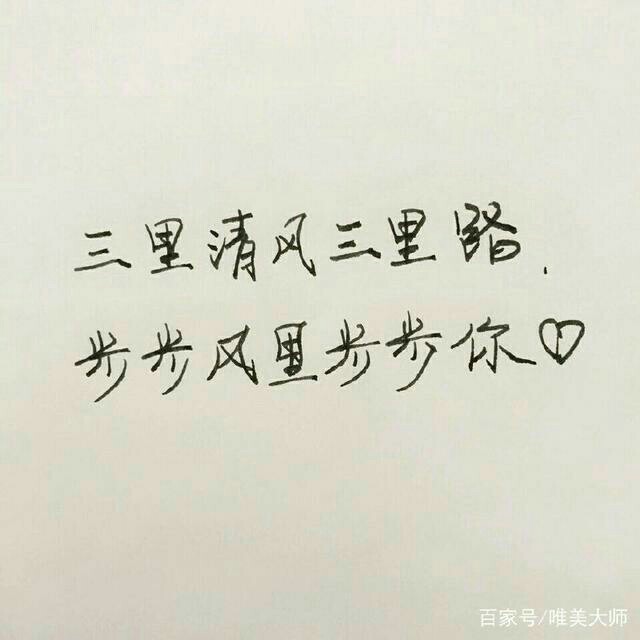 三里清风三里路.
步步风里步步你♡
百家号/唯美大师